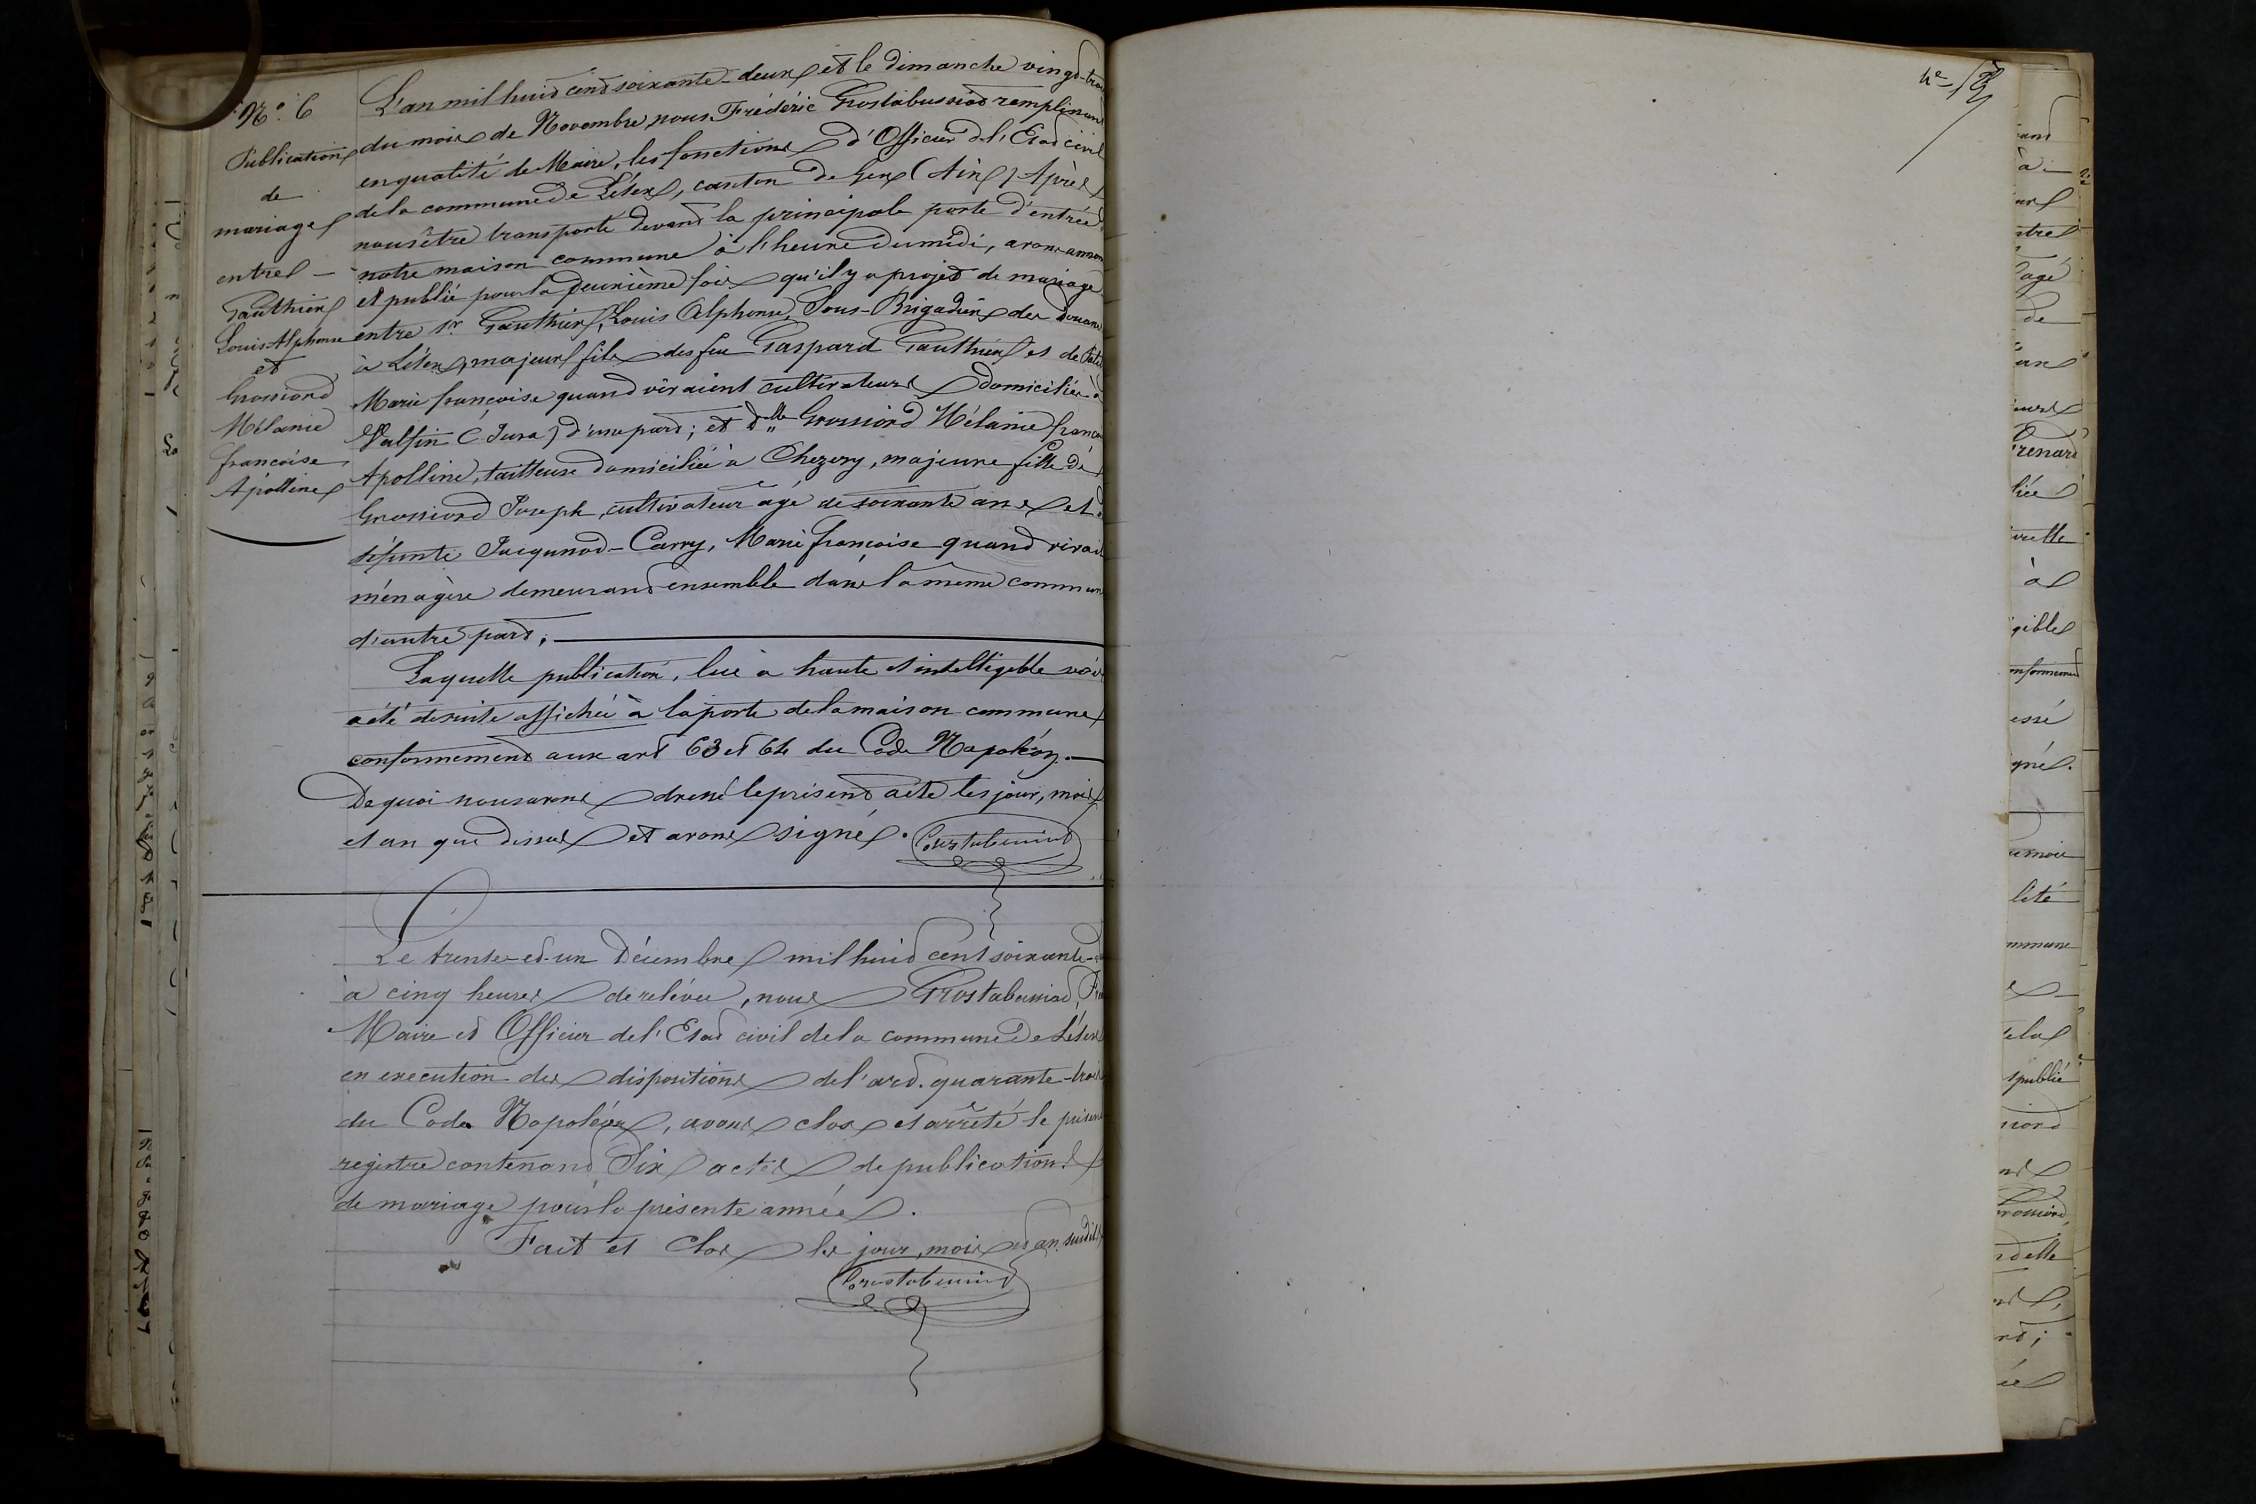 N.° 6
Publication
de
mariage
entre
Gauthier
Louis Alphonse
et
Grossiord
Mélanie
françoise
Apolline
L'an mil huit cent soixante-deux et le dimanche vingt-trois
du mois de Novembre, nous Frédéric Grostabussiat remplissant
en qualité de Maire, les fonctions d'Officier de l'Etat civil
de la commune de Lélex, canton de Gex (Ain) Après
nous être transporté devant la principale porte d'entrée
notre maison commune à l'heure du midi, avons annon
et publié pour la deuxième fois qu'il y a projet de mariage
entre sr. Gauthier, Louis Alphonse, Sous-Brigadier des Douanes
à Lélex, majeur fils des feu Gaspard Gauthier et de
Marie françoise quand vivaient cultivateurs domiciliés à
Valfin (Jura) d'une part; et dlle Grossiord Mélanie franço
Apolline, tailleuse domiciliée à Chezery, majeure fille de
Grossiord Joseph, cultivateur âgé de soixante ans et
défunte Jacquinod-Carry, Marie françoise quand vivait
ménagère demeurant ensemble dans la même commune
d'autre part;
Laquelle publication, lue à haute et intelligeble voix
a été de suite affichée à la porte de la maison commune
conformement aux art 63 et 64 du Code Napoléon.
De quoi nous avons dressé le présent acte les jour, mois
et an que dessus et avons signé. Grostabussiat
Le trente-et-un Décembre mil huit cent soixante-
à cinq heures de relévée, nous Grostabussiat,
Maire et Officier de l'Etat civil de la commune de Lélex
en execution des dispositions de l'art. quarante-trois
du Code Napoléon, avons clos et arrêté le présent
registre contenant Six actes de publications
de mariage pour la présente année.
Fait et Clos les jour, mois et an susdits
Grostabussiat